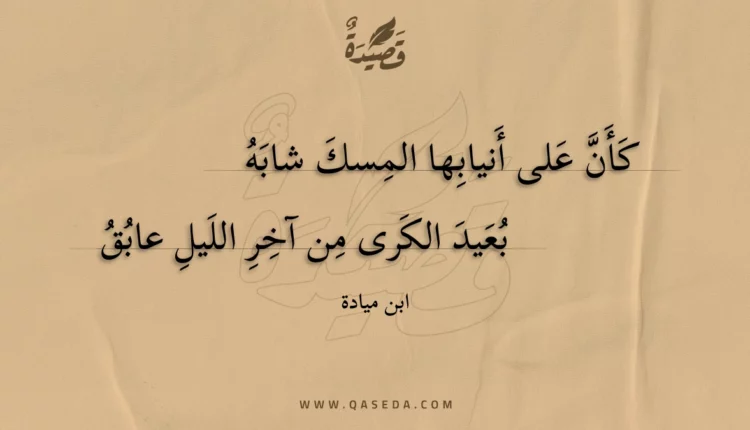 قَصِيْدَةٌ
كَأَنَّ عَلى أَنيابِها المِسكَ شابَهُ
بُعَيدَ الكَرَى مِن آخِرِ اللَيلِ عابُقُ
ابن ميادة
WWW.QASEDA.COM